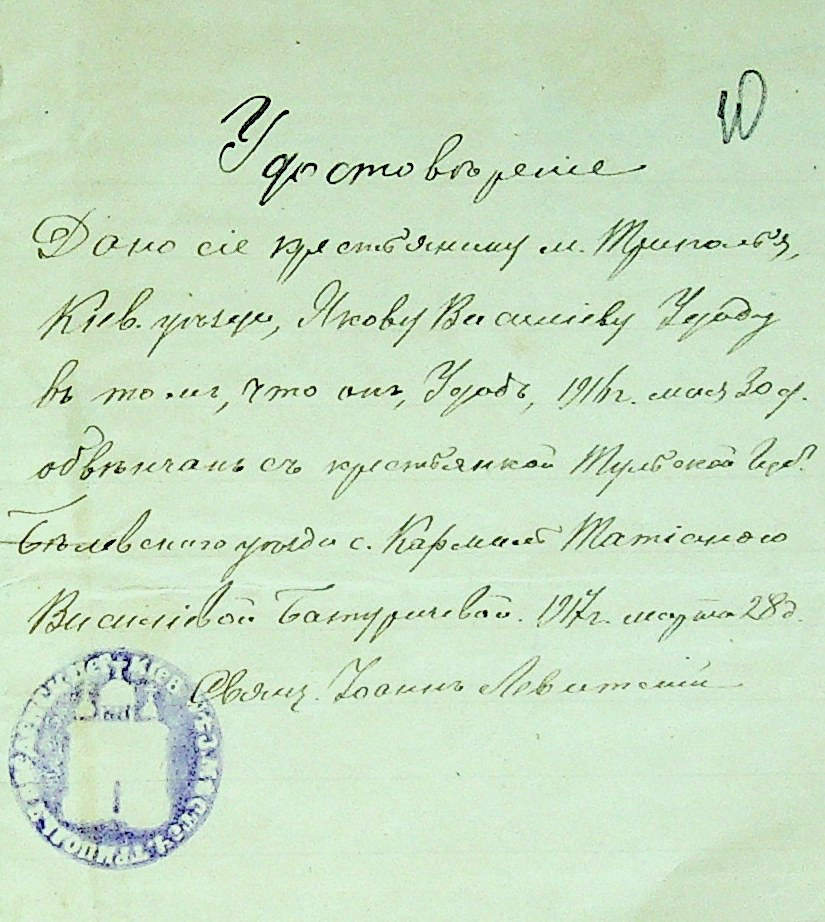 10
Удостовѣреніе
Дано сіе крестьянину м. Триполья,
Кіев. уѣзда, Якову Василіеву Удоду
въ томъ, что онъ, Удодъ, 1916 г. мая 30 д.
обвѣнчанъ съ крестьянкой Тульской Губ.
Бѣлевского уѣзда с. Татіаною
Василіевой Батуричевой. 1917 г. марта 28 д.
Свящ. Іоаннъ Левитскій
КІЕВ. МѢСТЕЧ. ТРИПОЛЬЯ